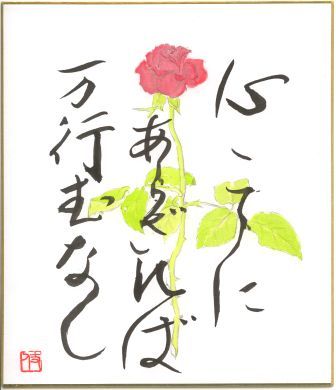 心ここに
あらざれば
万行むなし